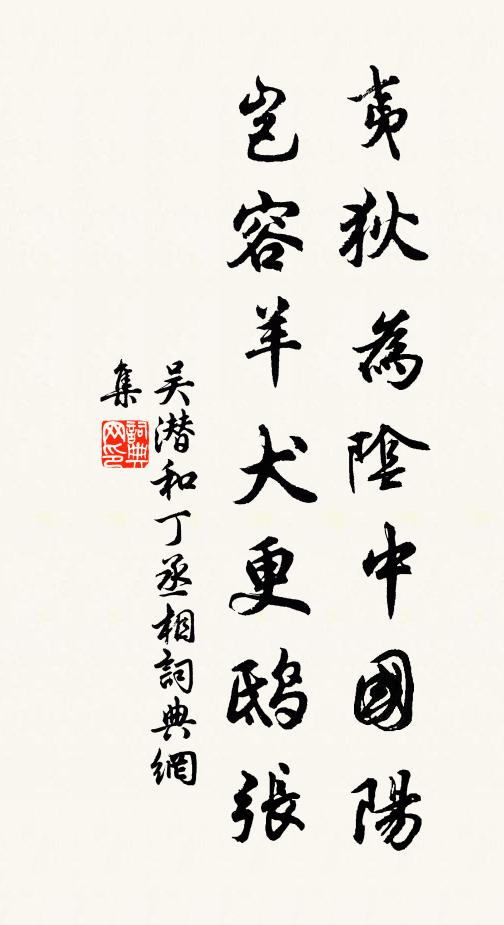 夷狄為陰中國陽
豈容羊犬更鴟張
吴潛和丁丞相詞典網
集
詞典网印